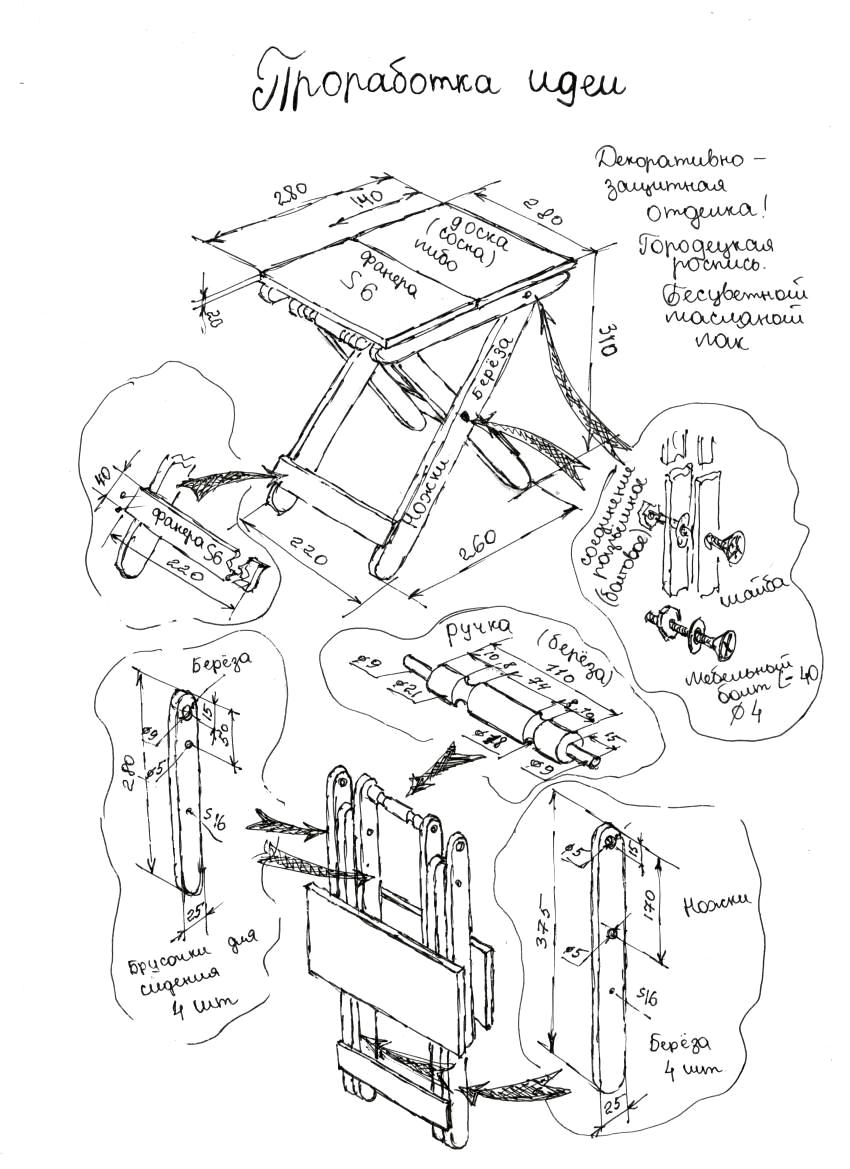 Проработка идеи
Декоративно-
защитная
отделка!
Городецкая
роспись.
Бесцветной
масляной
лак
280
140
280
доска
(сосна)
либо
фанера
S6
20
310
Берёза
Ножки
220
260
40
фанера S6
220
соединение
разъёмное
(болтовое)
шайба
Мебельный
болт L-40
Ø4
ручка
(берёза)
Ø9
Ø21
10
8
74
110
8
10
15
Ø18
Ø9
Берёза
15
50
Ø9
280
Ø5
S16
25
Брусочки для
сидения
4 шт
Ø5
15
375
170
Ножки
Ø5
S16
Берёза
4 шт
25